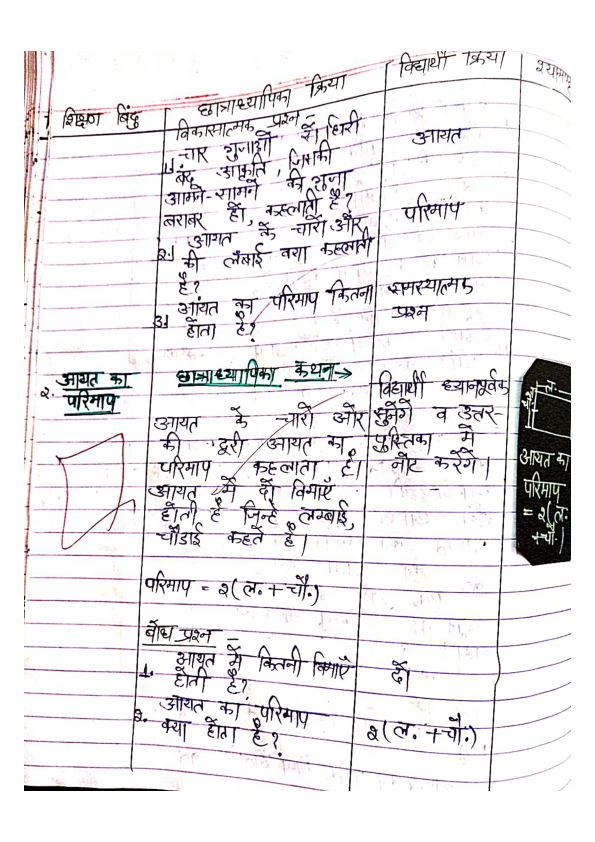 शिक्षण बिंदु
छात्राध्यापिका क्रिया
विद्यार्थी क्रिया
विकासात्मक प्रश्न -
1. चार भुजाओं से घिरी
बंद आकृति, जिसकी
आमने-सामने की भुजा
बराबर हो, कहलाती है?
आयत
2. आयत के चारों और
की लंबाई क्या कहलाती
है?
परिमाप
3. आयत का परिमाप कितना
होता है?
समस्यात्मक
प्रश्न
२. आयत का
परिमाप
छात्राध्यापिका कथन→
आयत के चारों और
की दूरी आयत का
परिमाप कहलाता है।
आयत में दो विमाएँ
होती है जिन्हे लम्बाई,
चौडाई कहते है।
परिमाप = २(ल.+चौ.)
विद्यार्थी ध्यानपूर्वक
सुनेगे व उत्तर-
पुस्तिका में
नोट करेगें।
ल.
चौ.
आयत का
परिमाप
= २(ल.
+चौ.)
बोध प्रश्न -
1. आयत में कितनी विमाएँ
होती है?
दो
2. आयत का परिमाप
क्या होता है?
२(ल.+चौ.)